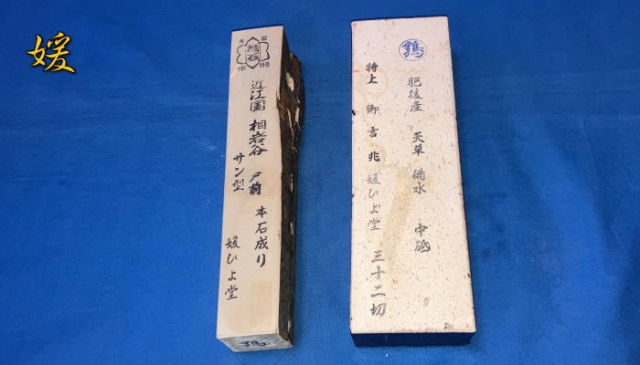 媛
近江国 相岩谷 戸前 本石成り
サン型 媛ひよ堂
鶉
肥後産 天草 備水 中砥
特上 御吉兆 媛ひよ堂 三十二切